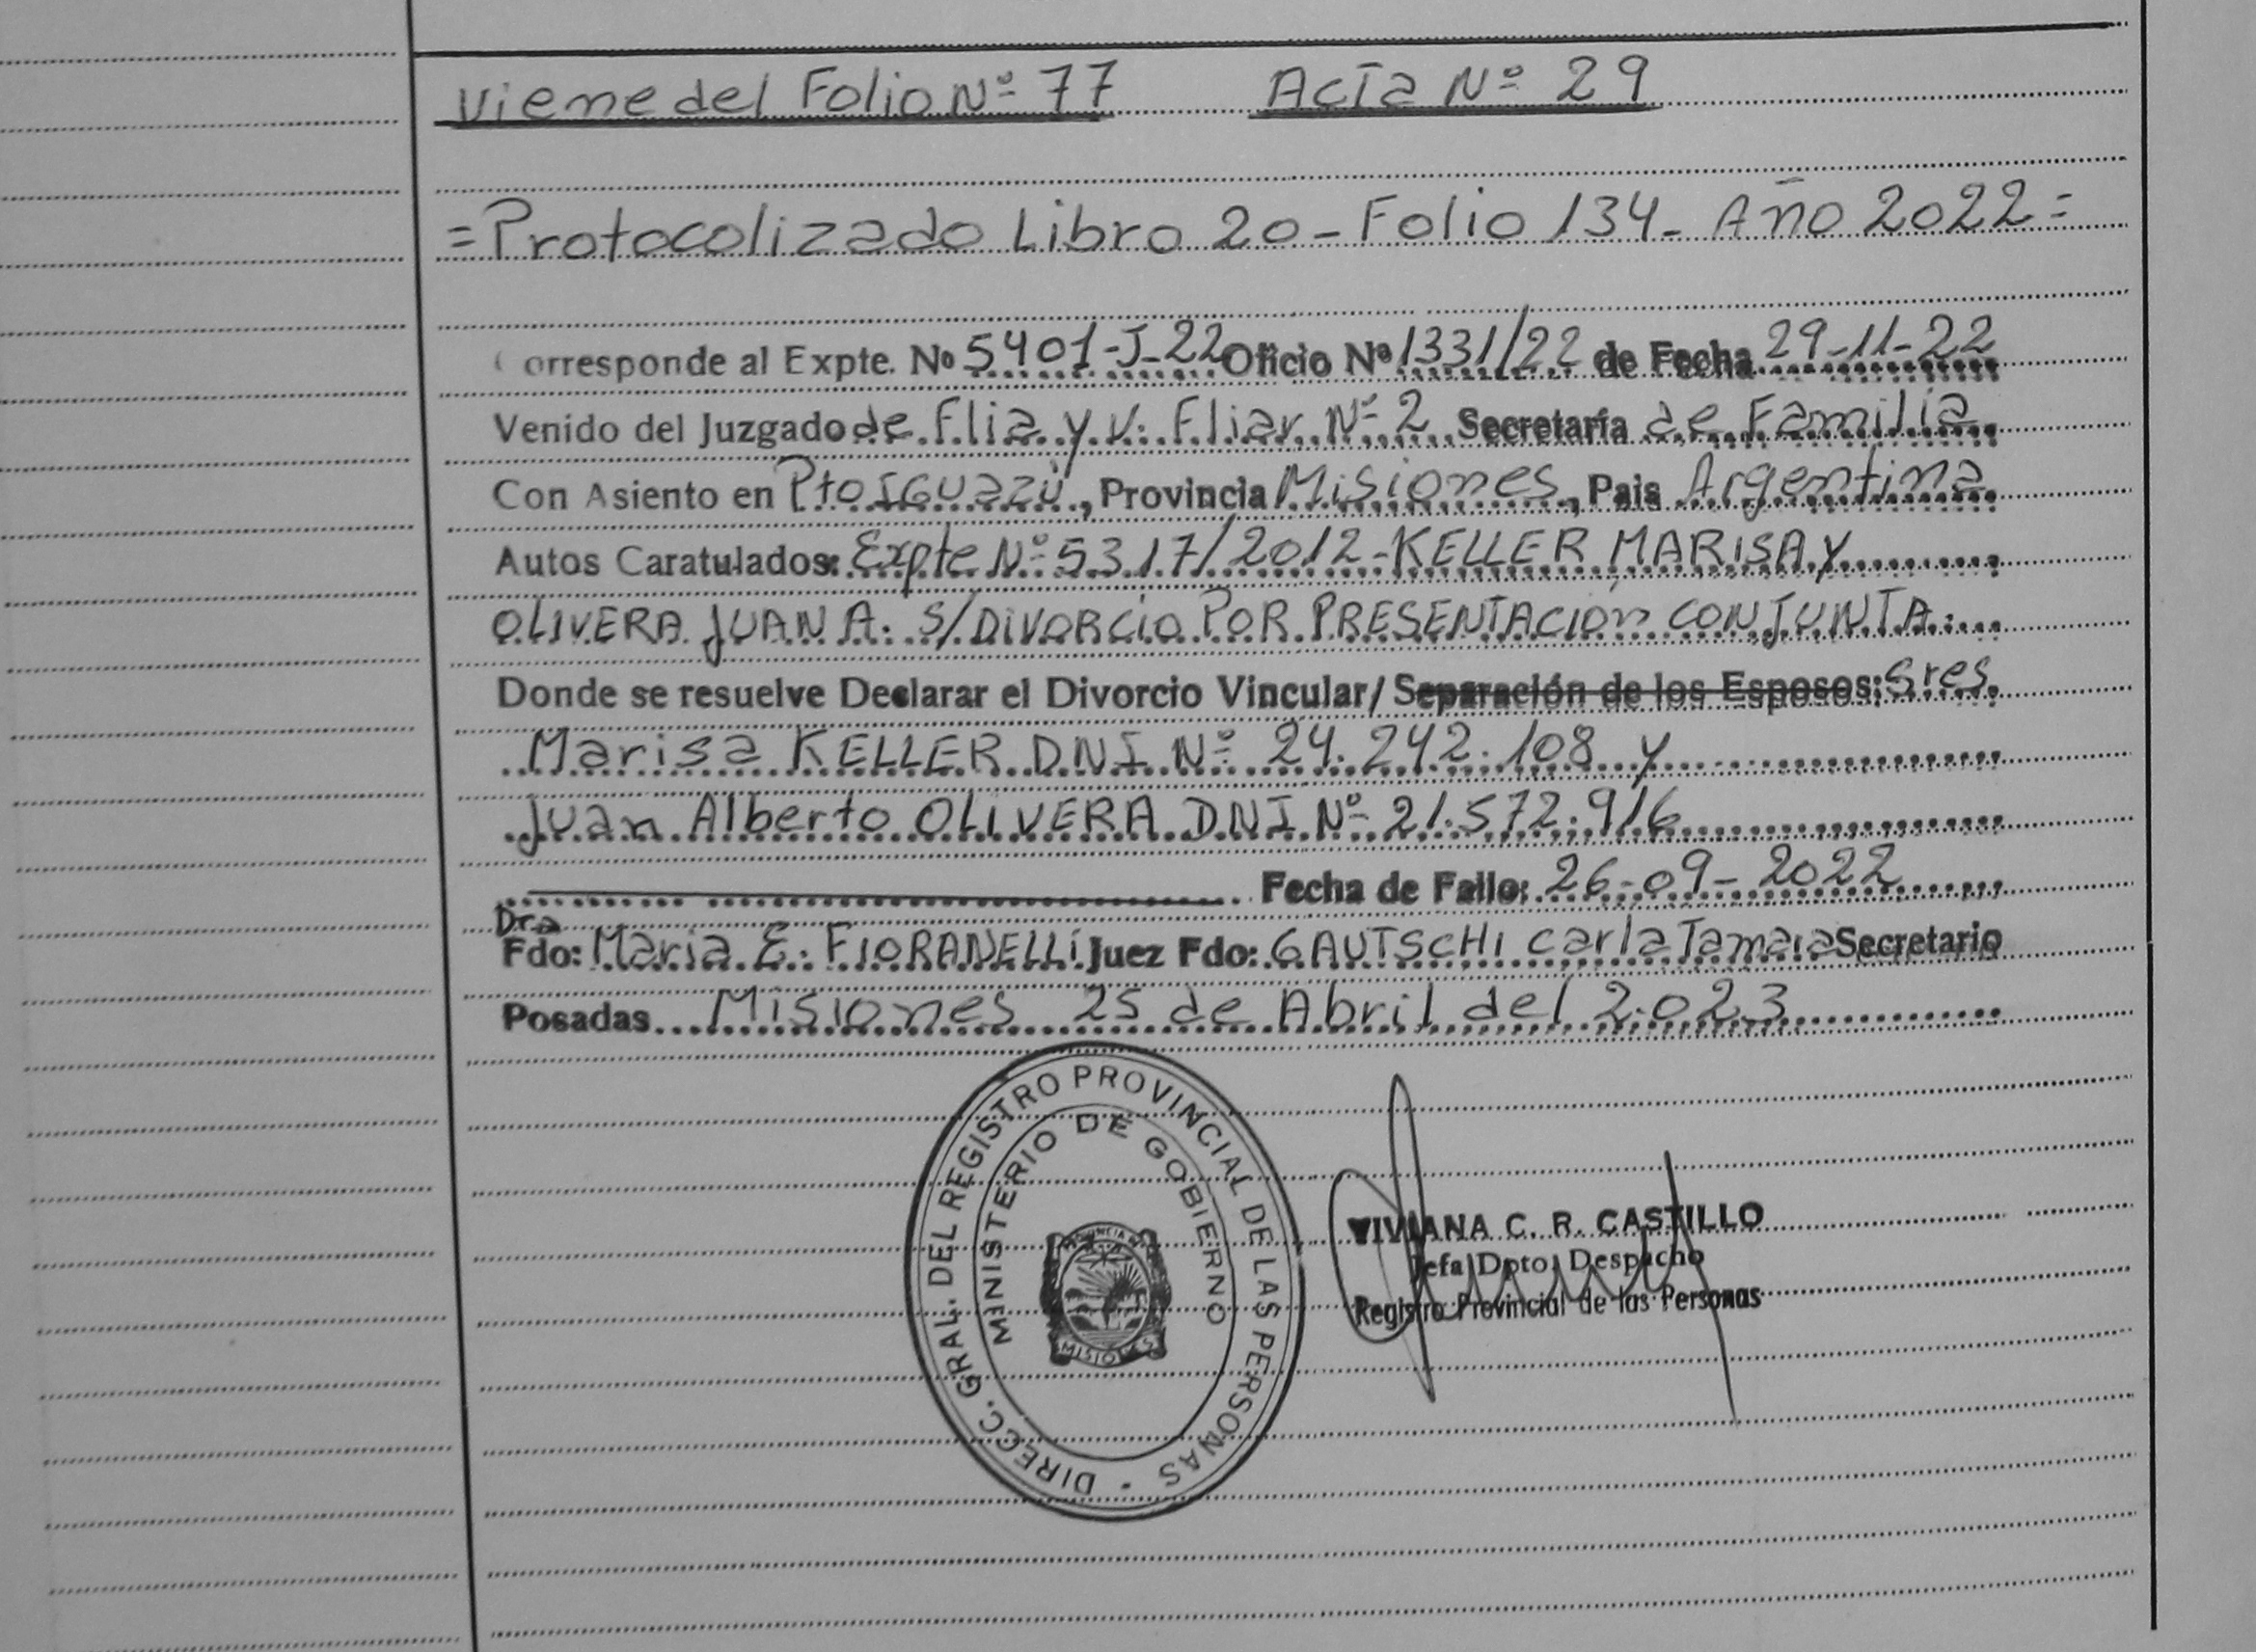 Viene del Folio Nº 77 Acta Nº 29
= Protocolizado Libro 20 - Folio 134 - Año 2022 =
Corresponde al Expte. Nº 5401-J-22 Oficio Nº 1331/22 de Fecha 29-11-22
Venido del Juzgado de Flia y V. Fliar Nº 2 Secretaría de Familia
Con Asiento en Pto IGUAZÚ, Provincia Misiones, Pais Argentina
Autos Caratulados: Expte Nº 5317/2012-KELLER MARISA Y
OLIVERA JUAN A. S/DIVORCIO POR PRESENTACIÓN CONJUNTA.
Donde se resuelve Declarar el Divorcio Vincular/ Separación de los Esposos: Sres
Marisa KELLER DNI Nº 24.242.108 y
Juan Alberto OLIVERA DNI Nº 21.572.916
Fecha de Fallo: 26-09-2022
Dra
Fdo: Maria E. FIORANELLI Juez Fdo: GAUTSCHI Carla Tamara Secretario
Posadas Misiones 25 de Abril del 2.023
DIRECC. GRAL. DEL REGISTRO PROVINCIAL DE LAS PERSONAS -
MINISTERIO DE GOBIERNO
PROVINCIA DE
MISIONES
VIVIANA C. R. CASTILLO
Jefa Dpto. Despacho
Registro Provincial de las Personas